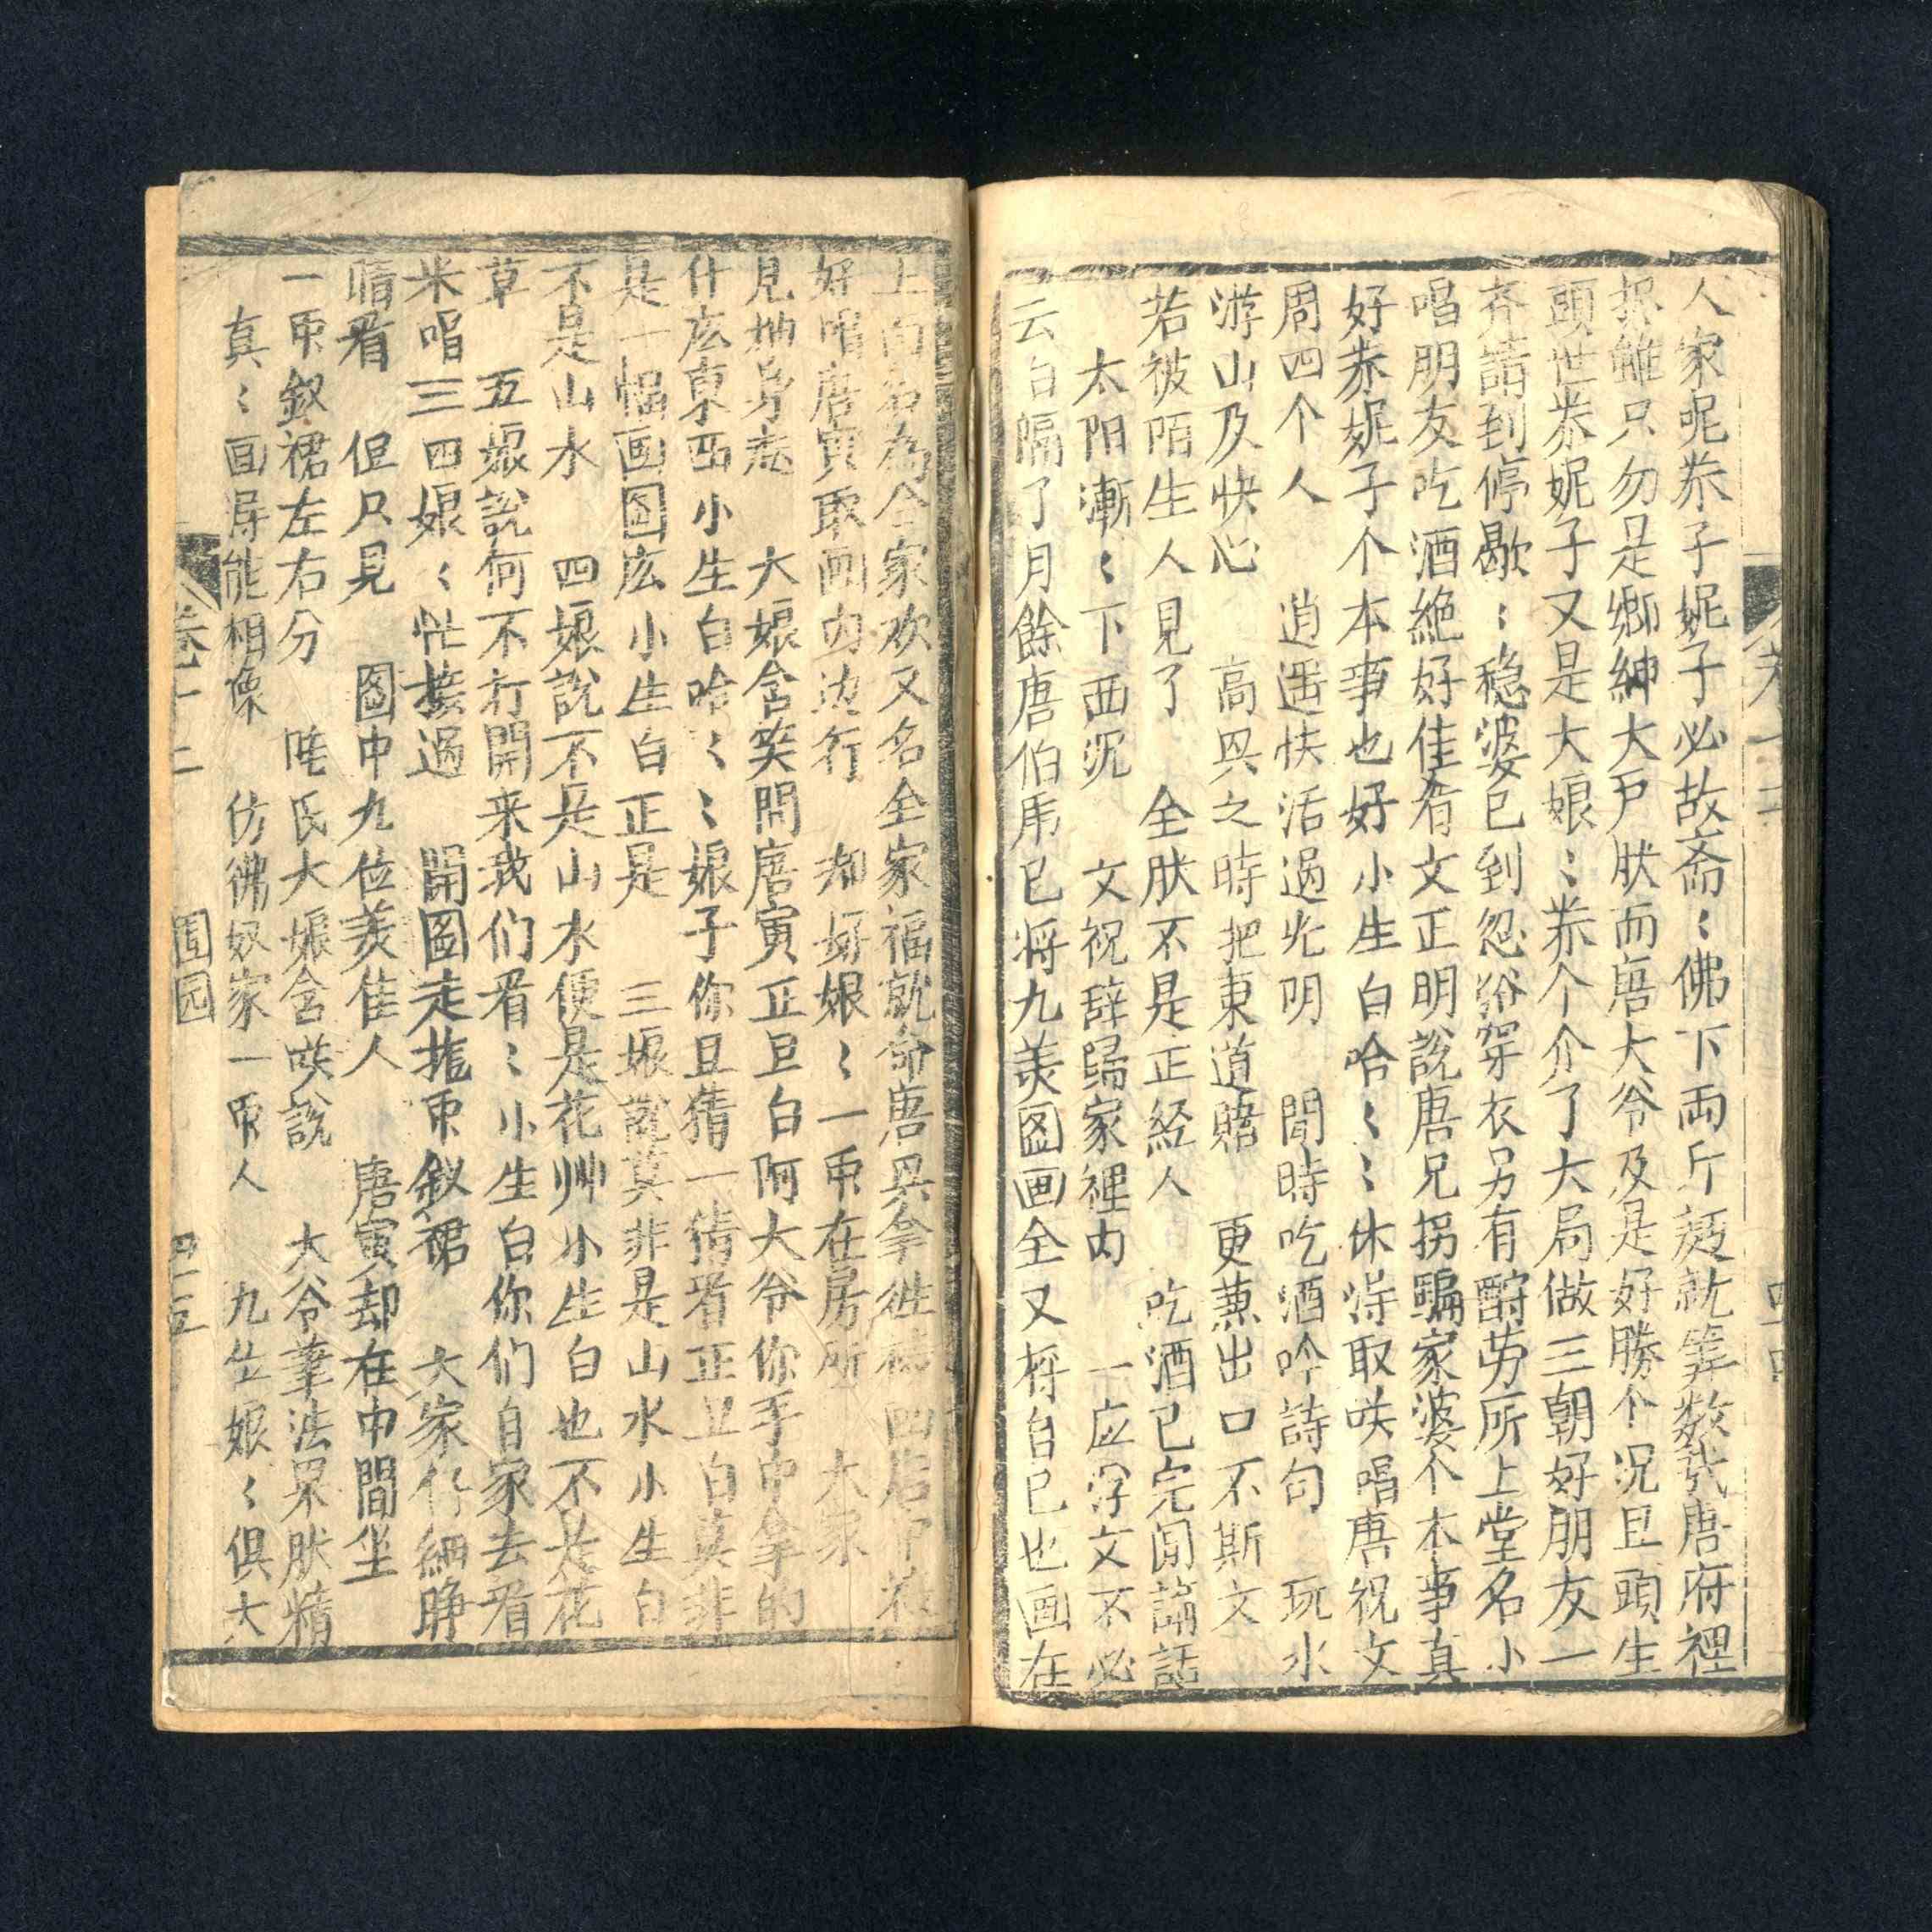 人家呢养子妮子必故斋〻佛下両斤𬆮就筭数哉唐府裡
挀雖只勿是鄉紳大户肰而唐大爷及是好勝个况且頭生
頭世养妮子又是大娘〻养个介了大局做三朝好朋友一
齐請到停歇〻穏婆已到忽浴穿衣另有酧劳所上堂名小
唱朋友吃酒絶好佳肴文正明說唐兄拐騙家婆个本事真
好养妮子个本事也好小生白哈〻〻休淂取咲唱唐祝文
周四个人　逍遥快活過光阴　閒時吃酒吟詩句　玩水
游山及快心　高兴之時把東道賭　更蕙出口不斯文
若被陌生人見了　全肰不是正经人　吃酒已完閒話
太阳漸〻下西沉　文祝辞歸家裡内　一应浮文不必
云白隔了月餘唐伯虎已将九美图画全又将自己也画在
上面名為全家欢又名全家福就命唐兴拿徃裱画店中裱
好唱唐寅取画内边行　却好娘〻一同在房所　大家
見抽身起　大娘含笑問唐寅正旦白阿大爷你手中拿的
什庅東西小生白哈〻〻娘子你且猜一猜看正旦白莫非
是一幅画图庅小生白正是　三娘說莫非是山水小生白
不是山水　四娘說不是山水便是花艸小生白也不是花
草　五娘說何不打開来我们看〻小生白你们自家去看
米唱三四娘〻忙接過　開图走拢同釵裙　大家仔細睁
睛看　但只見　图中九位美佳人　唐寅却在中間坐
一同釵裙左右分　陸氏大娘含咲說　大爷筆法果肰精
真〻画淂能相像　仿彿奴家一同人　九位娘〻俱大
卷十二　團园　四五
卷十二　四四